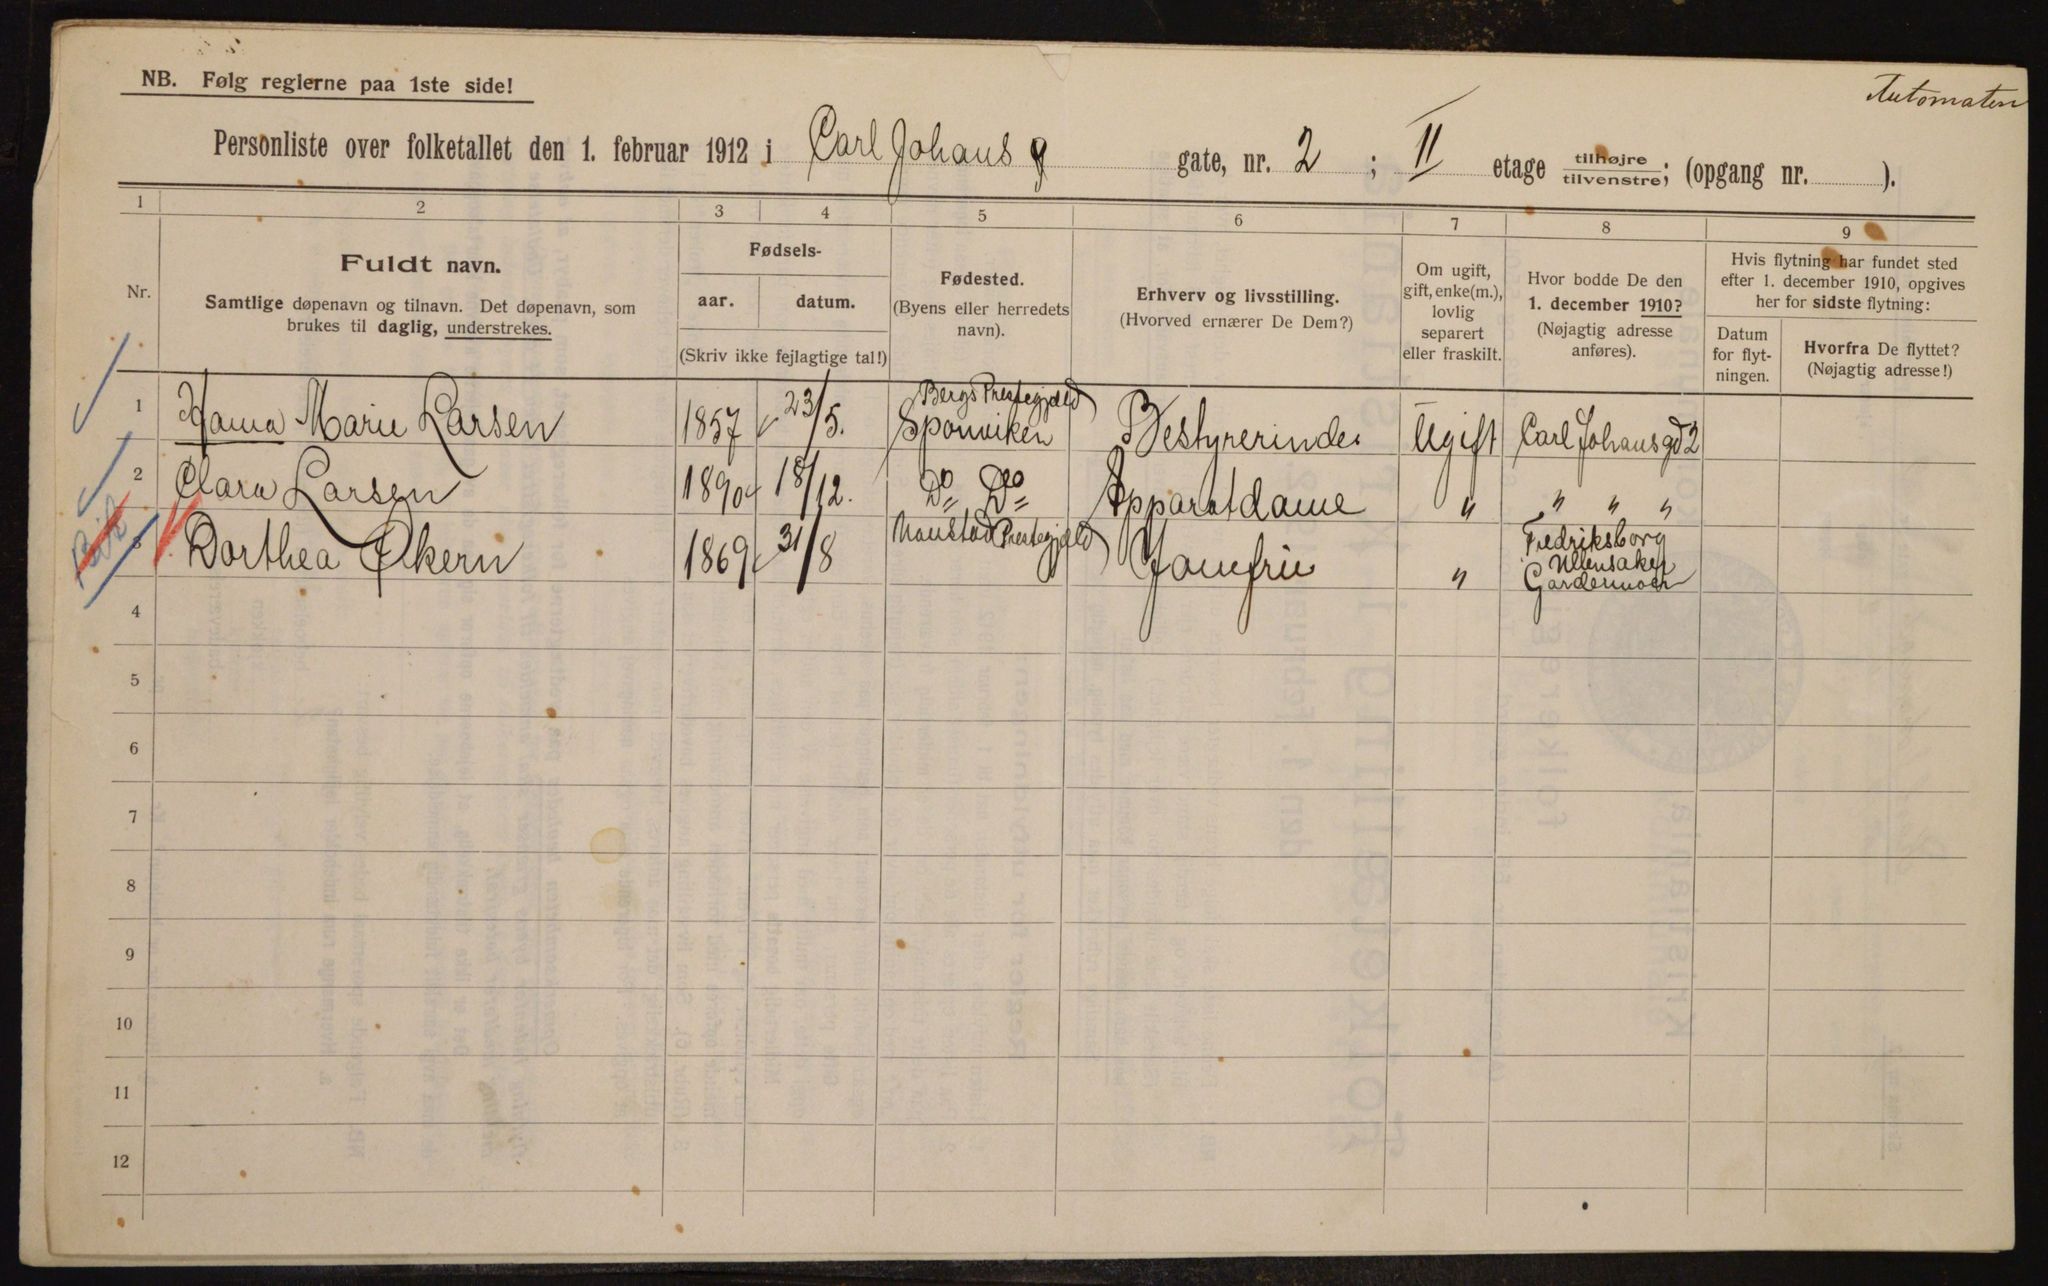 Automaten
NB. Følg reglerne paa 1ste side!
Personliste over folketallet den 1. februar 1912 i Carl Johans g gate, nr. 2 ; II etage tilhøjre/tilvenstre; (opgang nr. ).
1 2 3 4 5 6 7 8 9
Nr.
Fuldt navn.
Samtlige døpenavn og tilnavn. Det døpenavn, som
brukes til daglig, understrekes.
Fødsels-
aar. datum.
(Skriv ikke fejlagtige tal!)
Fødested.
(Byens eller herredets
navn).
Erhverv og livsstilling.
(Hvorved ernærer De Dem?)
Om ugift,
gift, enke(m.),
lovlig
separert
eller fraskilt.
Hvor bodde De den
1. december 1910?
(Nøjagtig adresse
anføres).
Hvis flytning har fundet sted
efter 1. december 1910, opgives
her for sidste flytning:
Datum
for flyt-
ningen.
Hvorfra De flyttet?
(Nøjagtig adresse!)
1 Hanna Marie Larsen 1857 23/5. Bergs Prestegjæld Sponviken Bestyrerinde. Ugift Carl Johans gd 2
2 Clara Larsen 1890 18/12. Do Do Apparatdame " " " "
3 Dorthea Økern 1869 31/8 Prestegjæld Jomfru " Fredriksborg
Ullensaker
Gardermoen
4
5
6
7
8
9
10
11
12